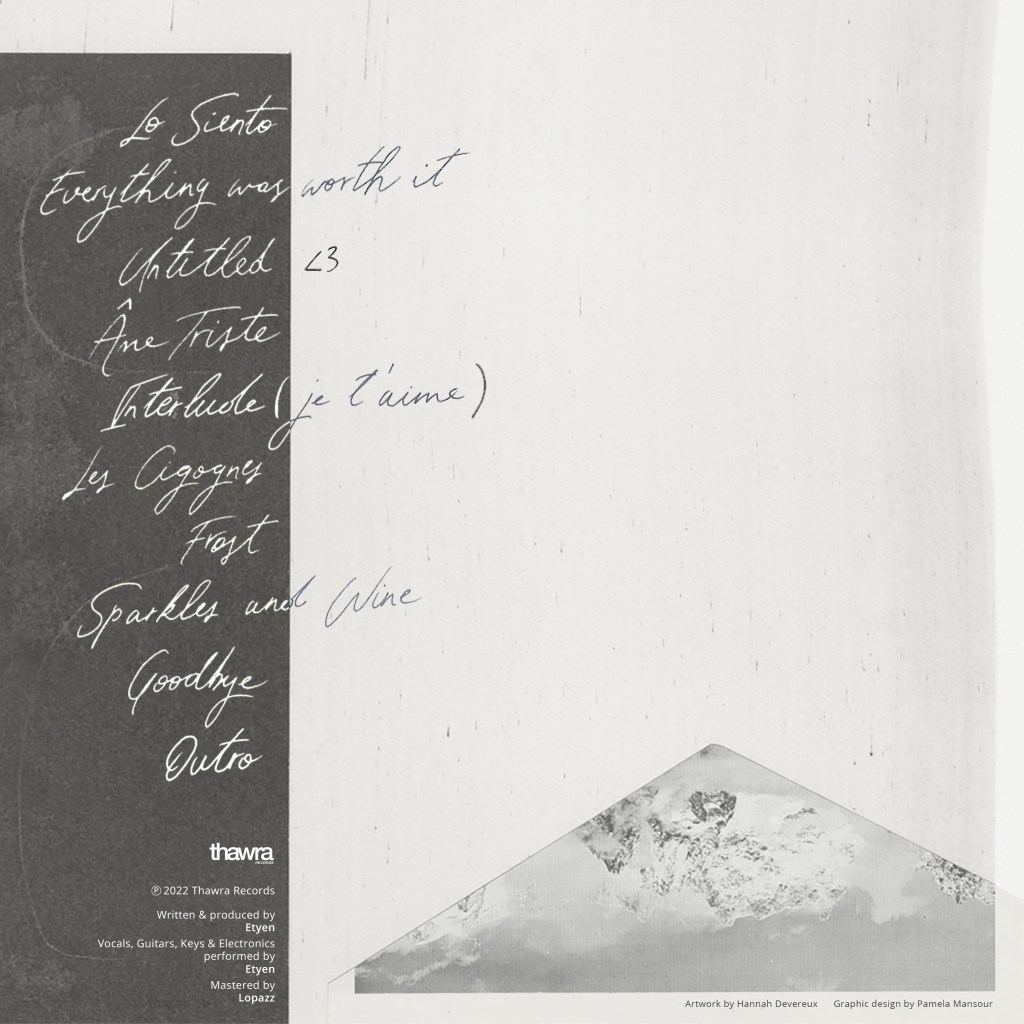 Lo Siento
Everything was worth it
Untitled <3
Âne Triste
Interlude (je t'aime)
Les Cigognes
Frost
Sparkles and Wine
Goodbye
Outro
thawra
records
℗ 2022 Thawra Records
Written & produced by
Etyen
Vocals, Guitars, Keys & Electronics
performed by
Etyen
Mastered by
Lopazz
Artwork by Hannah Devereux Graphic design by Pamela Mansour